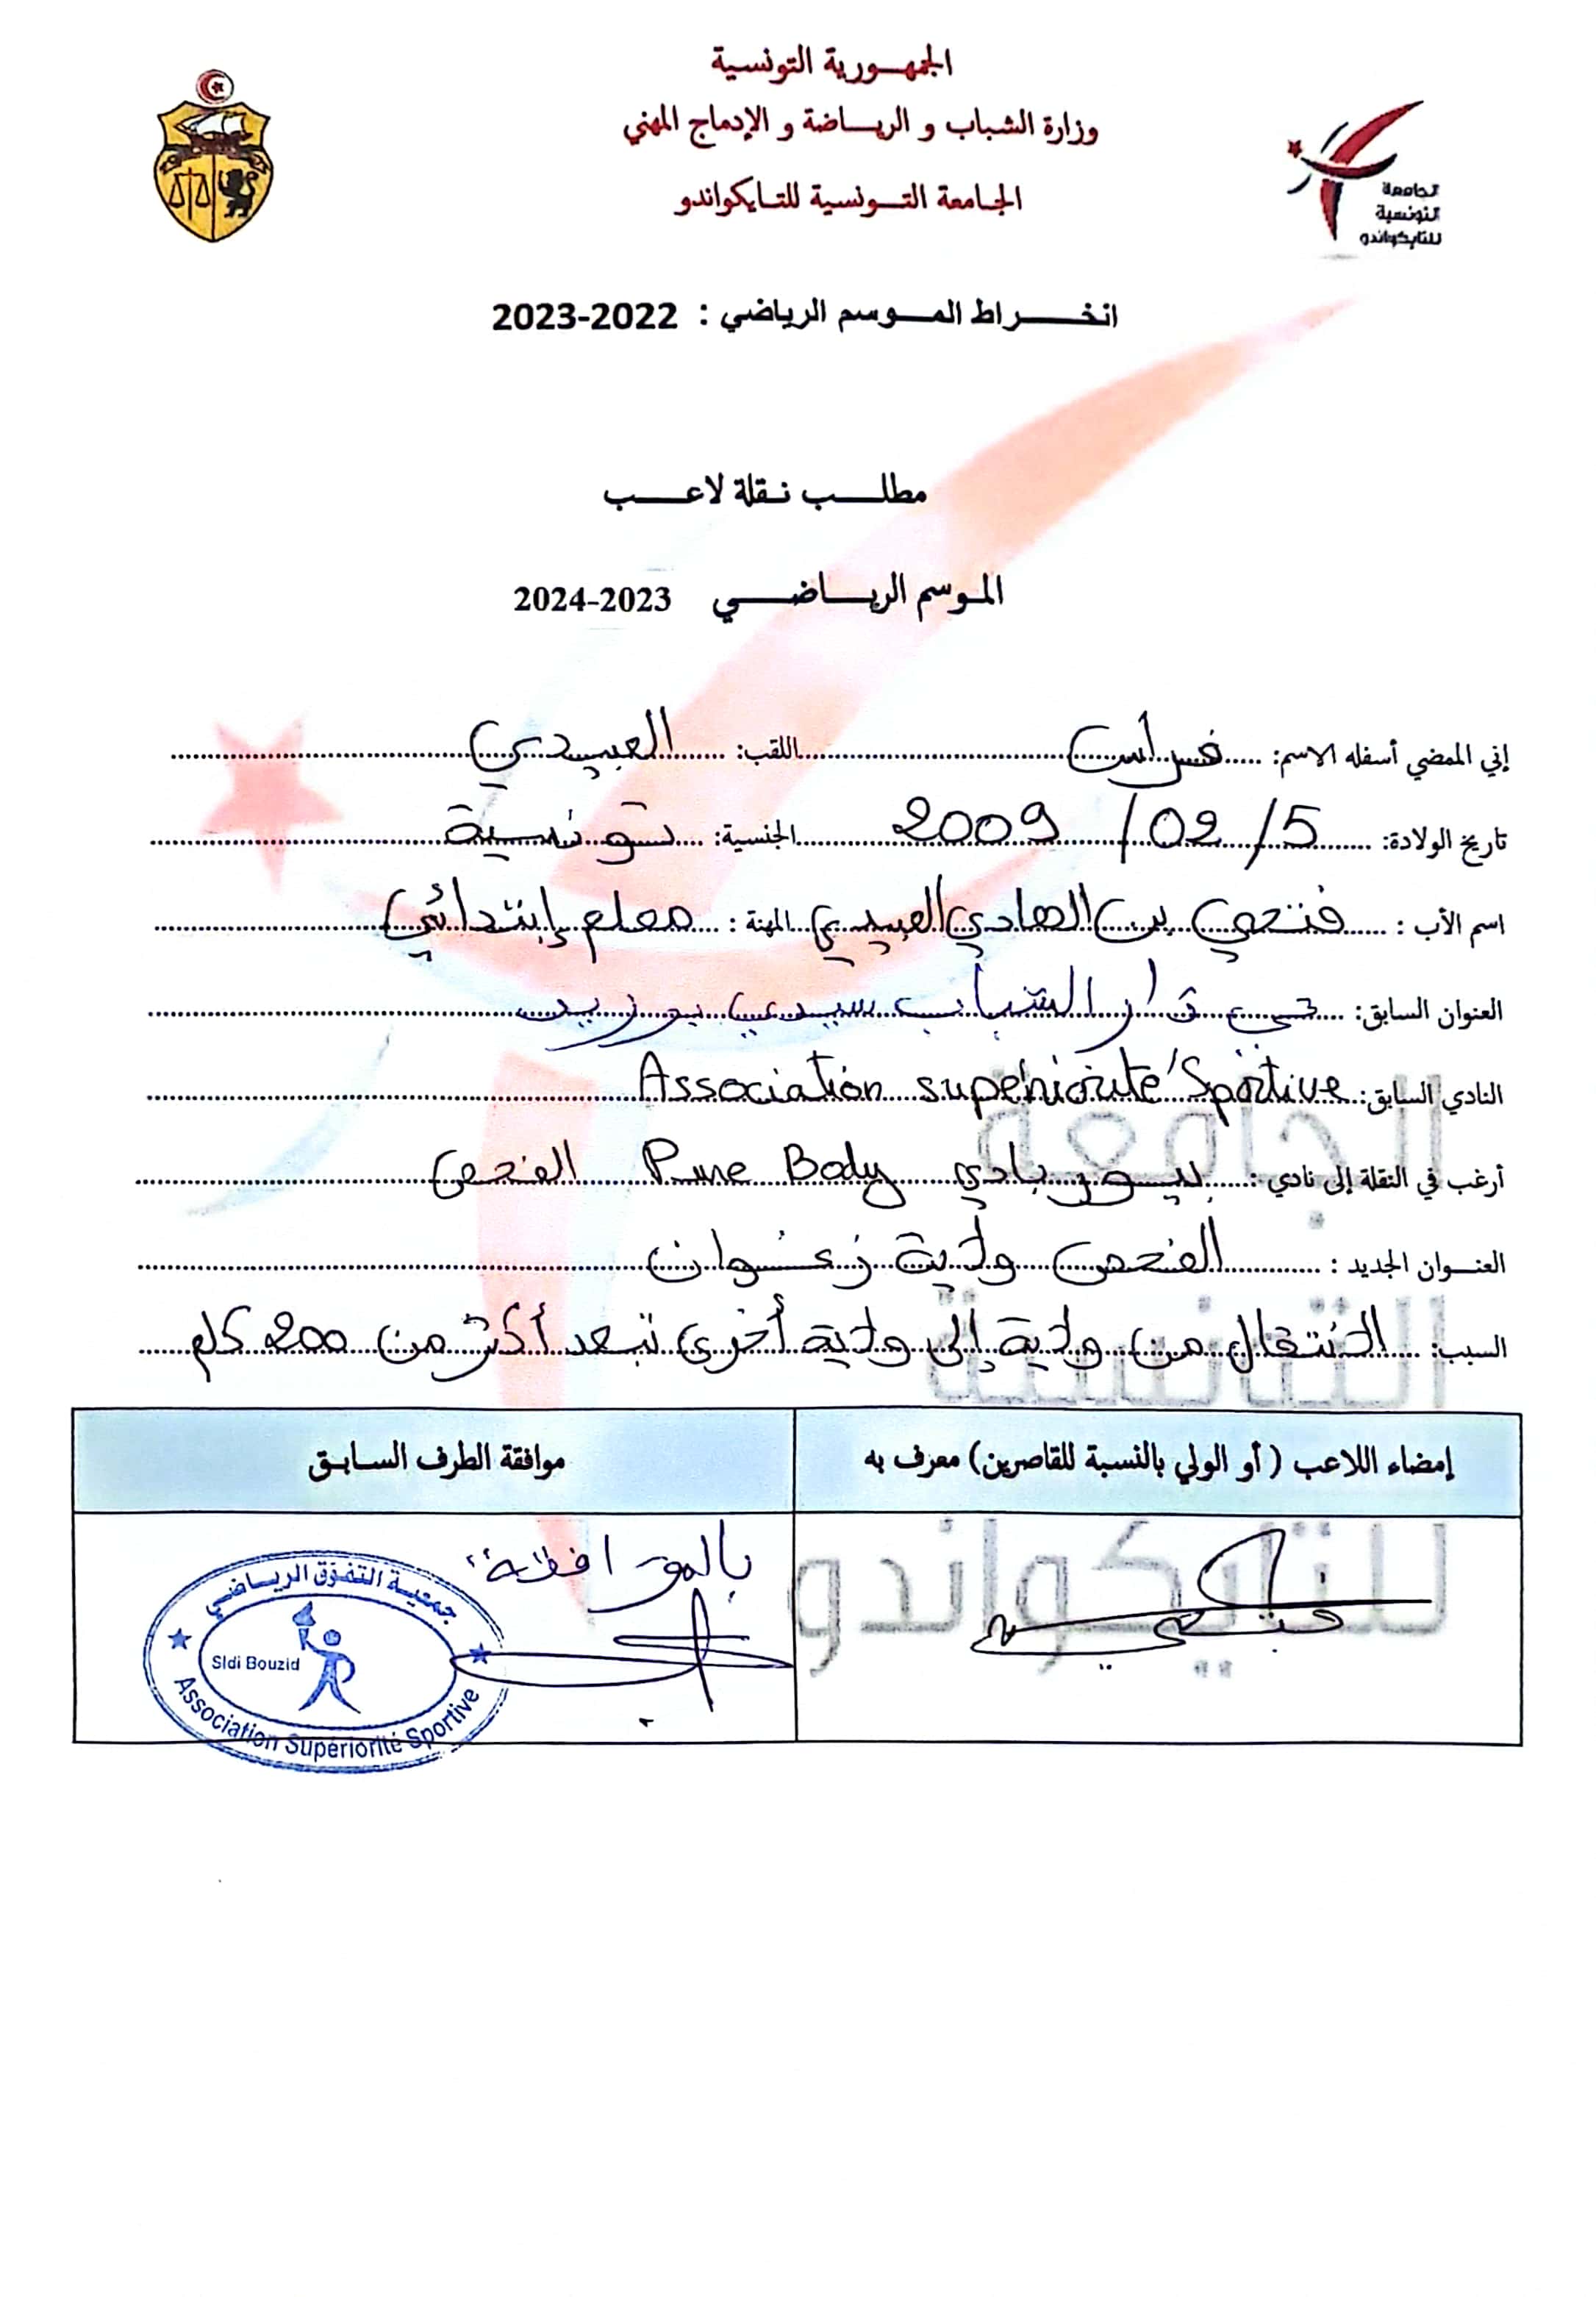 الجمهورية التونسية
وزارة الشباب و الرياضة و الإدماج المهني
الجامعة التونسية للتايكواندو
الجامعة
التونسية
للتايكواندو
انخراط الموسم الرياضي : 2022-2023
مطلب نقلة لاعب
الموسم الرياضي 2023-2024
إني الممضي أسفله الاسم: فراس اللقب: العبيدي
تاريخ الولادة: 5/ 02/ 2009 الجنسية: تونسية
اسم الأب : فتحي بن الهادي العبيدي المهنة : معلم إبتدائي
العنوان السابق: حي دار الشباب سيدي بوزيد
النادي السابق: Association superiorité Sportive
أرغب في النقلة إلى نادي : بيور بادي Pure Body الفحص
العنوان الجديد : الفحص ولاية زغوان
السبب: الانتقال من ولاية إلى ولاية أخرى تبعد أكثر من 200 كلم
إمضاء اللاعب ( أو الولي بالنسبة للقاصرين) معرف به
موافقة الطرف السابق
بالموافقة
جمعية التفوّق الرياضي
SIdi Bouzid
Association Supériorité Sportive
الجامعة
التونسية
للتايكواندو